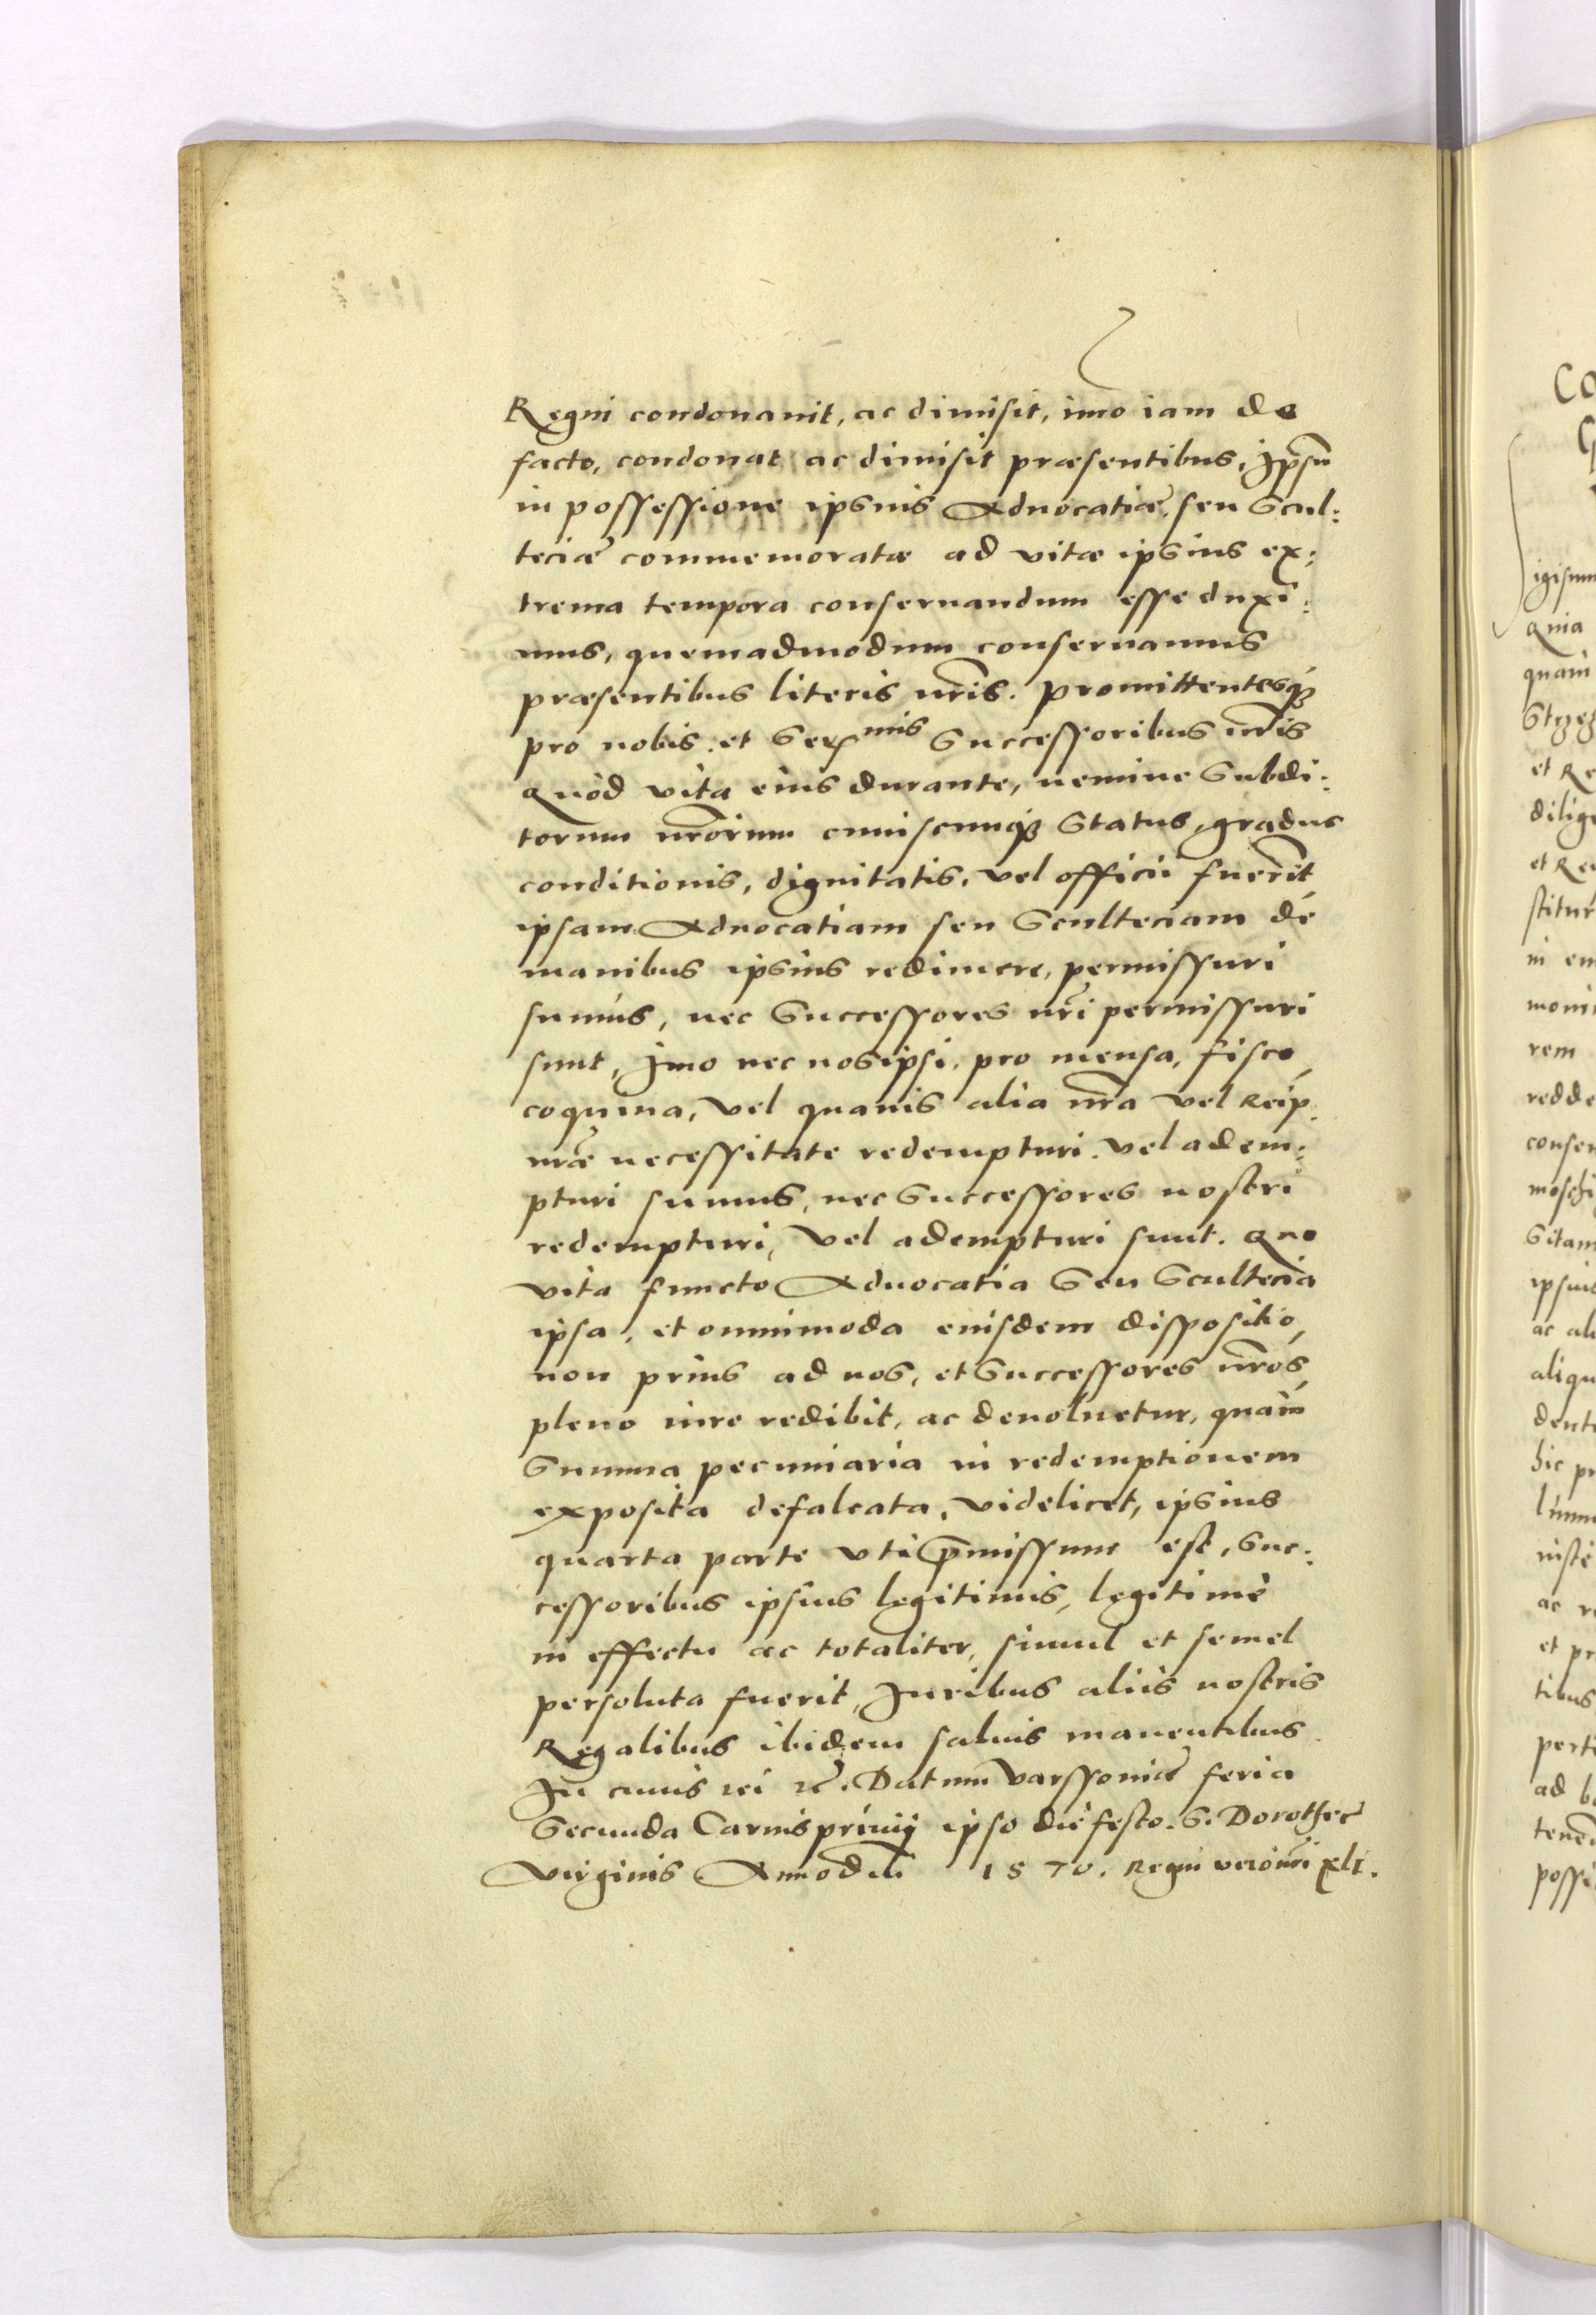 Regni condonauit, ac dimisit, imo iam de
facto, condonat ac dimisit præsentibus, Ip̃sũ
in possessione ipsius Aduocatiæ, seu Scul:
teciæ commemoratæ ad vitæ ipsius ex:
trema tempora conseruandum esse duxi:
mus, quemadmodum conseruamus
præsentibus literis nr̃is. promittentesq́ꝫ
pro nobis et Serᵐⁱˢ Successoribus nr̃is
Quòd vita eius durante, nemine Subdi:
torum nr̃orum cuiuscunqꝫ Status, gradus
conditionis, dignitatis, vel officii fuer̃it,
ipsam Aduocatiam seu Sculteciam de
manibus ipsius redimere, permissuri
sumus, nec Successores nr̃i permissuri
sunt, Imo nec nosipsi, pro mensa, fisco,
coquina, vel quauis alia nr̃a vel Reip.
nr̃æ necessitate redempturi. vel adem:
pturi sumus, nec Successores nostri
redempturi, vel adempturi sunt. Quo
vita functo Aduocatia Seu Scultecia
ipsa, et omnimoda eiusdem dispositio,
non prius ad nos, et Successores nr̃os,
pleno iure redibit, ac deuoluetur, quàm
Summa pecuniaria in redemptionem
exposita defalcata, videlicet, ipsius
quarta parte vti p̃missum est, Suc:
cessoribus ipsius legitimis, legitimè
in effectu ac totaliter, simul et semel
persoluta fuerit, Iuribus aliis nostris
Regalibus ibidem saluis manentibus.
In cuius rei rẽ. Datum Varssouiæ feria
Secunda Carnispriuij ipso die festo. S. Dorotheæ
Virginis Anno dñi 1570. Regni vero nr̃i xlI.
CO
igismu
Quia
quam
et Re
dilige
et Re
stitur
in em
rem
redde
conser
Sitam
ipsius
ac ali
aliqu
dent
hic pr
ac r
et pr
tibus
perti
ad b
possi